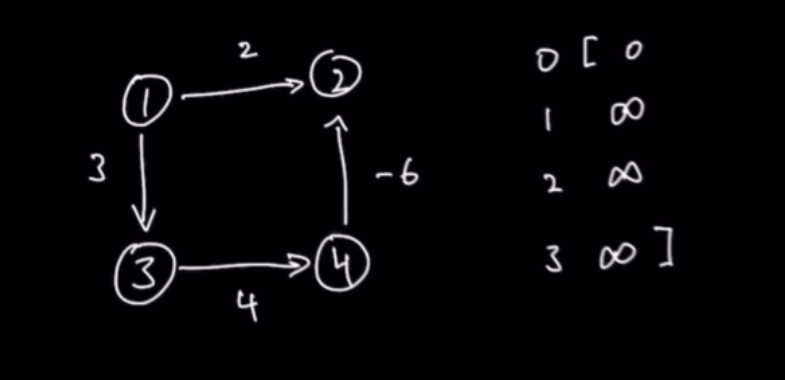 2
1
2
3
-6
3
4
4
0 [ 0
1 ∞
2 ∞
3 ∞ ]